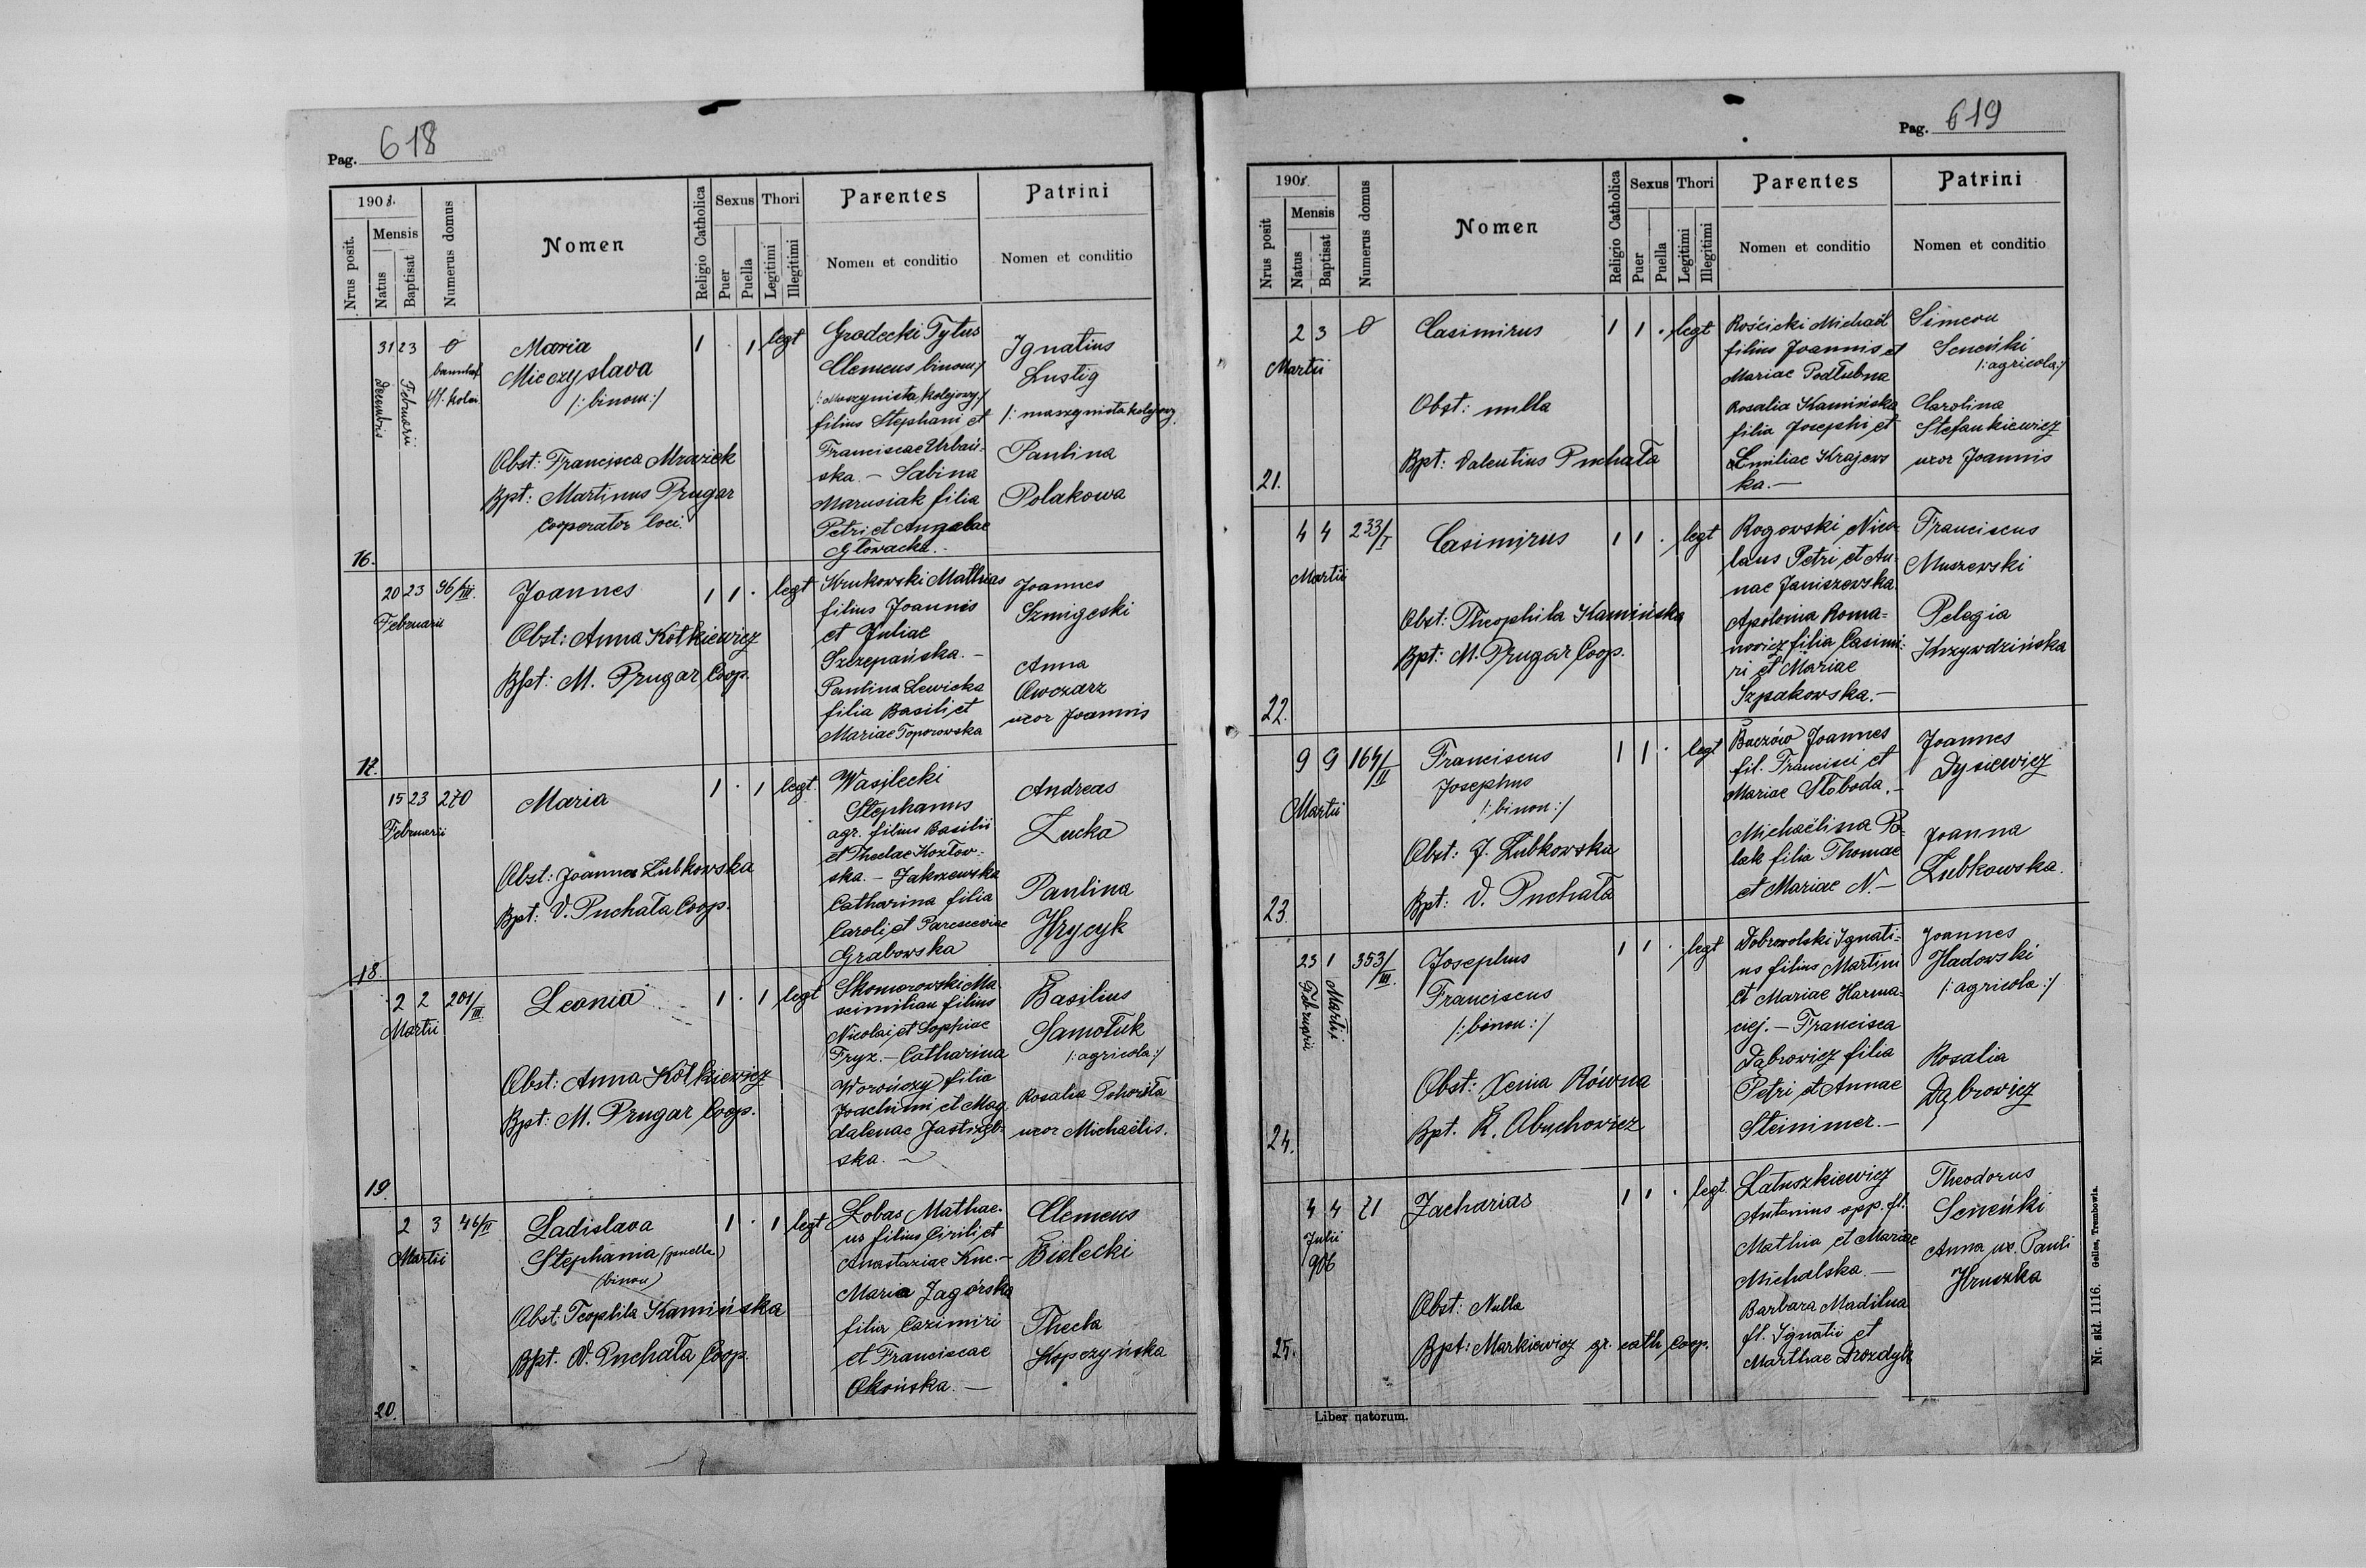 Pag. 618
1908.
Nrus posit.
Mensis
Natus
Baptisat
Numerus domus
Nomen
Religio Catholica
Sexus
Puer
Puella
Thori
Legitimi
Illegitimi
Parentes
Nomen et conditio
Patrini
Nomen et conditio
16.
31 23
Decembris
Februarii
Maria
Mieczyslava
/: binom :/
Obst: Francisca Mraziek
Bpt: Martinus Prugar
Cooperator loci.
1 . 1 legt
Grodecki Tytus
Clemens binom:/
/: Maszynista kolejowy :/
filius Stephani et
Franciscae Urbań-
ska. - Sabina
Marusiak filia
Petri et Angelae
Głowacka. -
Ignatius
Lustig
/: maszynista kolejowy
Paulina
Polakowa
17.
20 23 96/III.
Februarii
Joannes
Obst: Anna Kotkiewicz
Bpt: M. Prugar Coop.
1 1 . legt
Krukowski Mathias
filius Joannis
et Juliae
Szczepańska. -
Paulina Lewicka
filia Basili et
Mariae Toporowska
Joannes
Szmigeski
Anna
Owczarz
uxor Joannis
18.
15 23 270
Februarii
Maria
Obst: Joanna Zubkowska
Bpt: V. Puchała Coop.
1 . 1 legt.
Wasilecki
Stephanus
agr. filius Basilii
et Theclae Kozłow-
ska. - Zakrzewska
Catharina filia
Caroli et Parasceviae
Grabowska
Andreas
Zucka
Paulina
Hrycyk
19.
2 2 201/III.
Martii
Leonia
Obst: Anna Kotkiewicz
Bpt: M. Prugar Coop.
1 . 1 legt
Skomorowski Ma-
ximilian filius
Nicolai et Sophiae
Fryz. - Catharina
Worończy filia
Joachimi et Mag-
dalenae Jastrzęb-
ska. -
Basilius
Samołuk
/: agricola :/
Rosalia
uxor Michaëlis.
20.
2 3 46/II
Martii
Ladislava
Stephania (puella)
(binom)
Obst: Teophila Kamińska
Bpt. V. Puchała Coop.
1 . 1 legt
Lobas Mathae-
us filius Cirili et
Anastaziae Kuc. -
Maria Zagórska
filia Cazimiri
et Franciscae
Okońska. -
Clemens
Bielecki
Thecla
Kopczyńska
Pag. 619
1908
Nrus posit
Mensis
Natus
Baptisat
Numerus domus
Nomen
Religio Catholica
Sexus
Puer
Puella
Thori
Legitimi
Illegitimi
Parentes
Nomen et conditio
Patrini
Nomen et conditio
21.
2 3
Martii
Casimirus
Obst: nulla
Bpt: Valentius Puchała
1 1 . legt
Rościcki Michaël
filius Joannis et
Mariae Podłubna
Rosalia Kamińska
filia Josephi et
Emiliae Krajews
ka. -
Simeon
Seneński
/: agricola :/
Carolina
Stefankiewicz
uxor Joannis
22.
4 4 233/I
Martii
Casimirus
Obst: Theophila Kamińska
Bpt: M. Prugar Coop.
1 1 . legt
Rogowski Nico-
laus Petri et An-
nae Janiszewska.
Apolonia Roma-
nowicz filia Casimi-
ri et Mariae
Szpakowska. -
Franciscus
Muszewski
Pelagia
Krzywdzińska
23.
9 9 164/II
Martii
Franciscus
Josephus
/: binom :/
Obst: J. Zubkowska
Bpt: V. Puchała
1 1 . legt
Baczów Joannes
fil. Francisci et
Mariae Słoboda. -
Michaëlina Po-
lak filia Thomae
et Mariae N. -
Joannes
Dysiewicz
Joanna
Zubkowska.
24.
23 1 353/III.
Februarii
Martii
Josephus
Franciscus
/: binom :/
Obst: Xenia Równa
Bpt. R. Abuchowicz
1 1 . legt
Dobrwolski Ignati-
us filius Martini
et Mariae Harma-
ciej. - Francisca
Dąbrowicz filia
Petri et Annae
Steinimer. -
Joannes
Hadowski
/: agricola :/
Rosalia
Dąbrowicz
25.
4 4 71
Julii
906
Zacharias
Obst: Nulla
Bpt: Markiewicz gr. cath. Coop.
1 1 . legt.
Łatuszkiewicz
Antonius opp. fl.
Mathia et Mariae
Michalska. -
Barbara Madilna
fl. Ignatii et
Marthae Drozdyk
Theodorus
Seneński
Anna ux. Pauli
Hruszka
Liber natorum.
Nr. skł. 1116. Gelles, Trembowla.